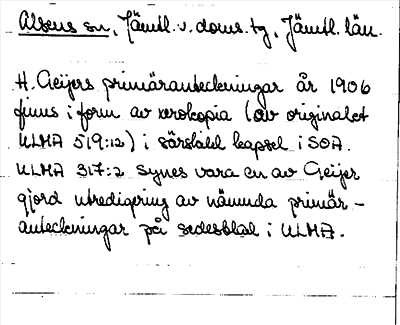 Alsens sn, Jämtl. v. doms. tg, Jämtl. län.
H. Geijers primäranteckningar år 1906
finns i form av xerokopia (av originalet
ULMA 519:12) i särskild kapsel i SOA.
ULMA 317:2 synes vara en av Geijer
gjord utredigering av nämnda primär-
anteckningar på sedesblad i ULMA.